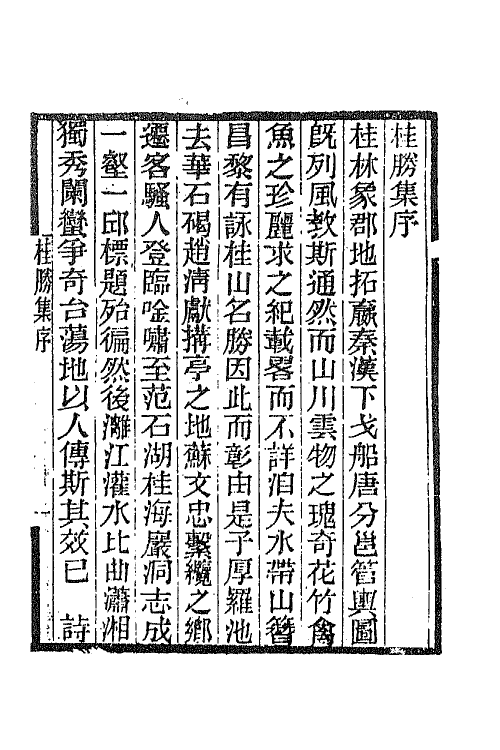 桂勝集序
桂林象郡地拓嬴秦漢下戈船唐分邕管輿圖
旣列風敎斯通然而山川雲物之瑰奇花竹禽
魚之珍麗求之紀載畧而不詳洎夫水帶山簪
昌黎有詠桂山名勝因此而彰由是子厚羅池
去華石碣趙淸獻搆亭之地蘇文忠繫纜之鄉
遷客騷人登臨唫嘯至范石湖桂海巖洞志成
一壑一邱標題殆徧然後灕江灌水比曲瀟湘
獨秀闌蠻爭奇台蕩地以人傳斯其效已　詩
桂勝集序
一